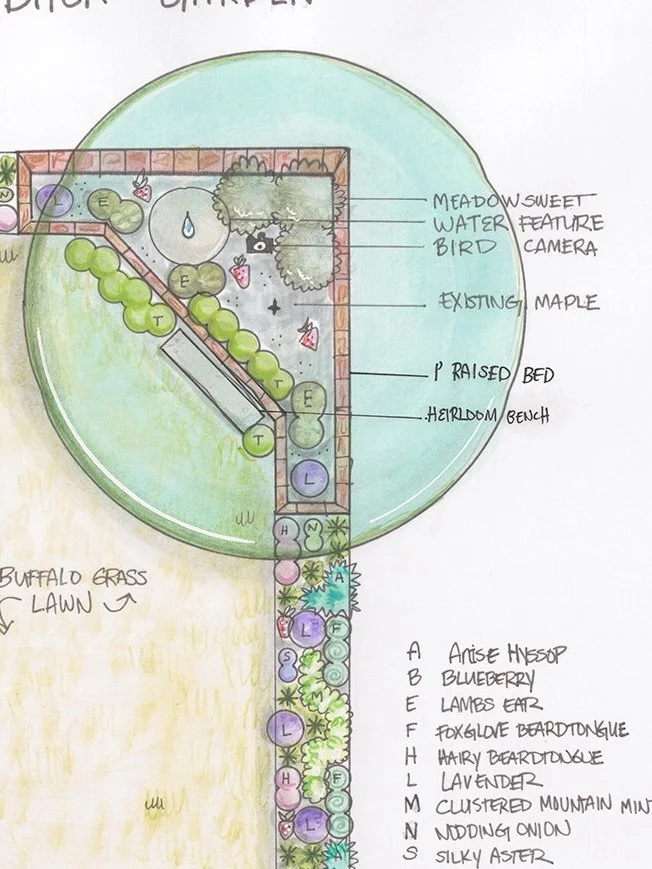 GARDEN
L
E
N
MEADOWSWEET
WATER FEATURE
BIRD CAMERA
E
EXISTING MAPLE
T
1' RAISED BED
T
E
HEIRLOOM BENCH
T
L
H N
A
BUFFALO GRASS
LAWN
L F
S
M
L
H F
L
A
A ANISE HYSSOP
B BLUEBERRY
E LAMBS EAR
F FOXGLOVE BEARDTONGUE
H HAIRY BEARDTONGUE
L LAVENDER
M CLUSTERED MOUNTAIN MIN
N NODDING ONION
S SILKY ASTER